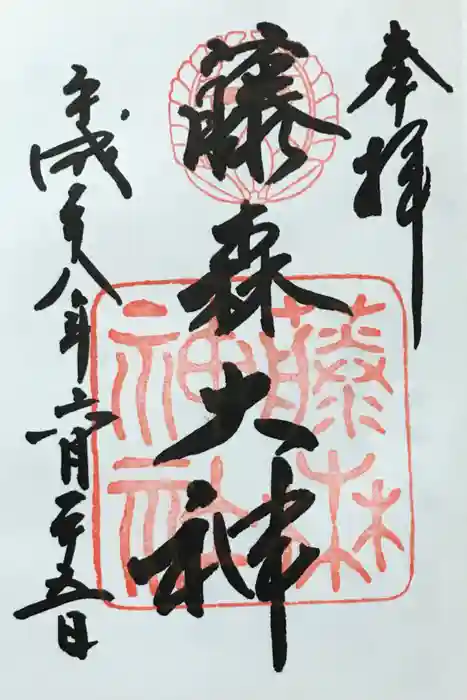 奉拝
藤森大神
平成二十八年六月二十五日
藤森神社